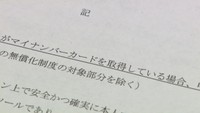 記
がマイナンバーカードを取得している場合、
の無償化制度の対象部分を除く）
ン上で安全かつ確実に本人
ツールであり